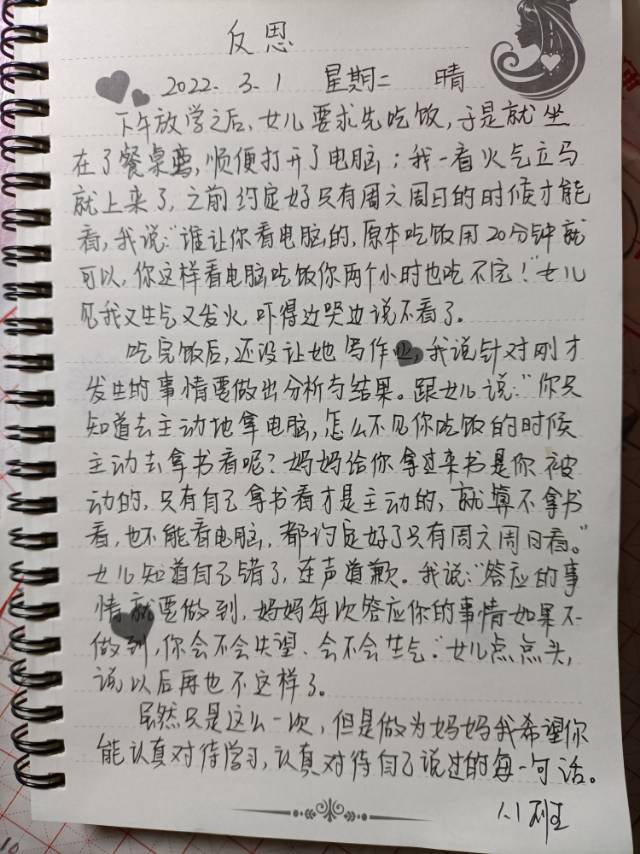 反思
2022.3.1 星期二 晴
下午放学之后,女儿要求先吃饭,于是就坐
在了餐桌旁,顺便打开了电脑;我一看火气立马
就上来了,之前约定好只有周六周日的时候才能
看,我说:“谁让你看电脑的,原本吃饭用20分钟就
可以,你这样看电脑吃饭你两个小时也吃不完!”女儿
见我又生气又发火,吓得边哭边说不看了。
吃完饭后,还没让她写作业,我说针对刚才
发生的事情要做出分析与结果。跟女儿说:“你只
知道去主动地拿电脑,怎么不见你吃饭的时候
主动去拿书看呢?妈妈给你拿过来书是你被
动的,只有自己拿书看才是主动的,就算不拿书
看,也不能看电脑,都约定好了只有周六周日看。”
女儿知道自己错了,连声道歉。我说:“答应的事
情就要做到,妈妈每次答应你的事情如果不
做到,你会不会失望、会不会生气。”女儿点点头,
说以后再也不这样了。
虽然只是这么一次,但是做为妈妈我希望你
能认真对待学习,认真对待自己说过的每一句话。